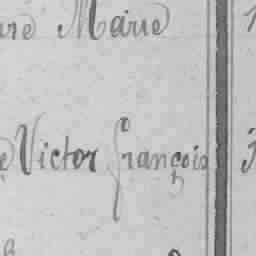 Marie
Victor François